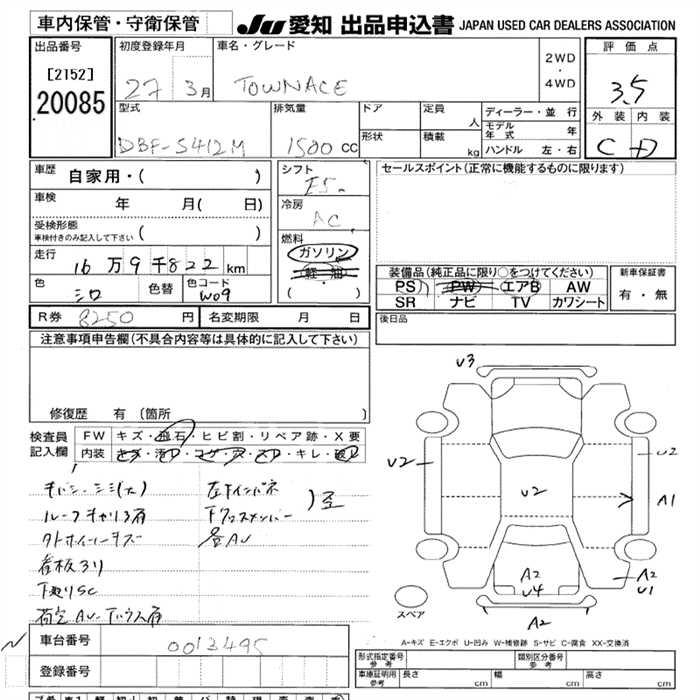 車内保管・守衛保管
JU 愛知 出品申込書 JAPAN USED CAR DEALERS ASSOCIATION
出品番号
[2152]
20085
初度登録年月
27 3月
車名・グレード
TOWNACE
2WD
・
4WD
評価点
3.5
外装 内装
C D
型式
DBF-S412M
排気量
1500 cc
ドア
形状
定員
人
積載
kg
ディーラー・並行
モデル年式 年
ハンドル 左・右
車歴
自家用・( )
車検
年 月( 日)
受検形態
車検付きのみ記入して下さい ( )
走行
16万9千822km
色
シロ
色替
色コード
W09
シフト
F5
冷房
AC
燃料
ガソリン
軽油
( )
セールスポイント(正常に機能するものに限ります)
装備品(純正品に限り○をつけてください)
PS PW エアB AW
SR ナビ TV カワシート
新車保証書
有・無
R券 8250 円
名変期限 月 日
後日品
注意事項申告欄(不具合内容等は具体的に記入して下さい)
修復歴 有(箇所 )
検査員
記入欄
FW キズ・飛石・ヒビ割・リペア跡・X要
内装
キレ
ルーフキャリア有
看板入り
下廻りSC
左インパネ
下クロスメンバー
各AU
U3
U2
U2
U2
A1
A2
U4
A2
U1
A2
スペア
A-キズ E-エクボ U-凹み W-補修跡 S-サビ C-腐食 XX-交換済
車台番号
0013495
登録番号
形式指定番号
参考
類別区分番号
参考
車庫証明用
参考
長さ cm
幅 cm
高さ cm